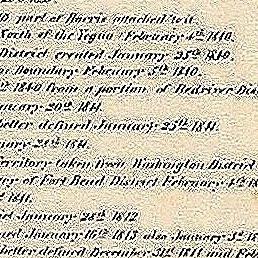 part of Harris attached to it
North of the Yegua (February 4th 1840.
District created January 25th 1840.
Boundary February 5th 1840.
1840 from a portion of Redriver Dis
nuary 20th 1841.
better defined January 25th 1841.
uary 21st 1841.
erritory taken from Washington District
ay of Fort Bend District February 4th 18
1841.
January 28th 1842
uard January 16th 1843 also January 3d 18
better defined December 31st 1841 and Fe